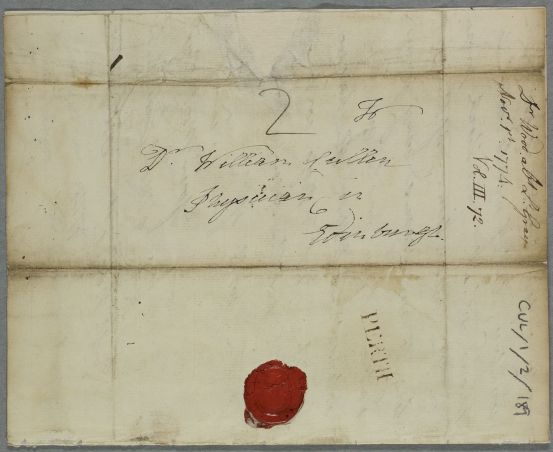 2
To
Dr. William Cullen
Physician in
Edinburgh
Dr. Wood. abt. Ly. Gray
Novr. 1st. 1774.
Vol. III. 72.
PERTH
CUL/1/2/189